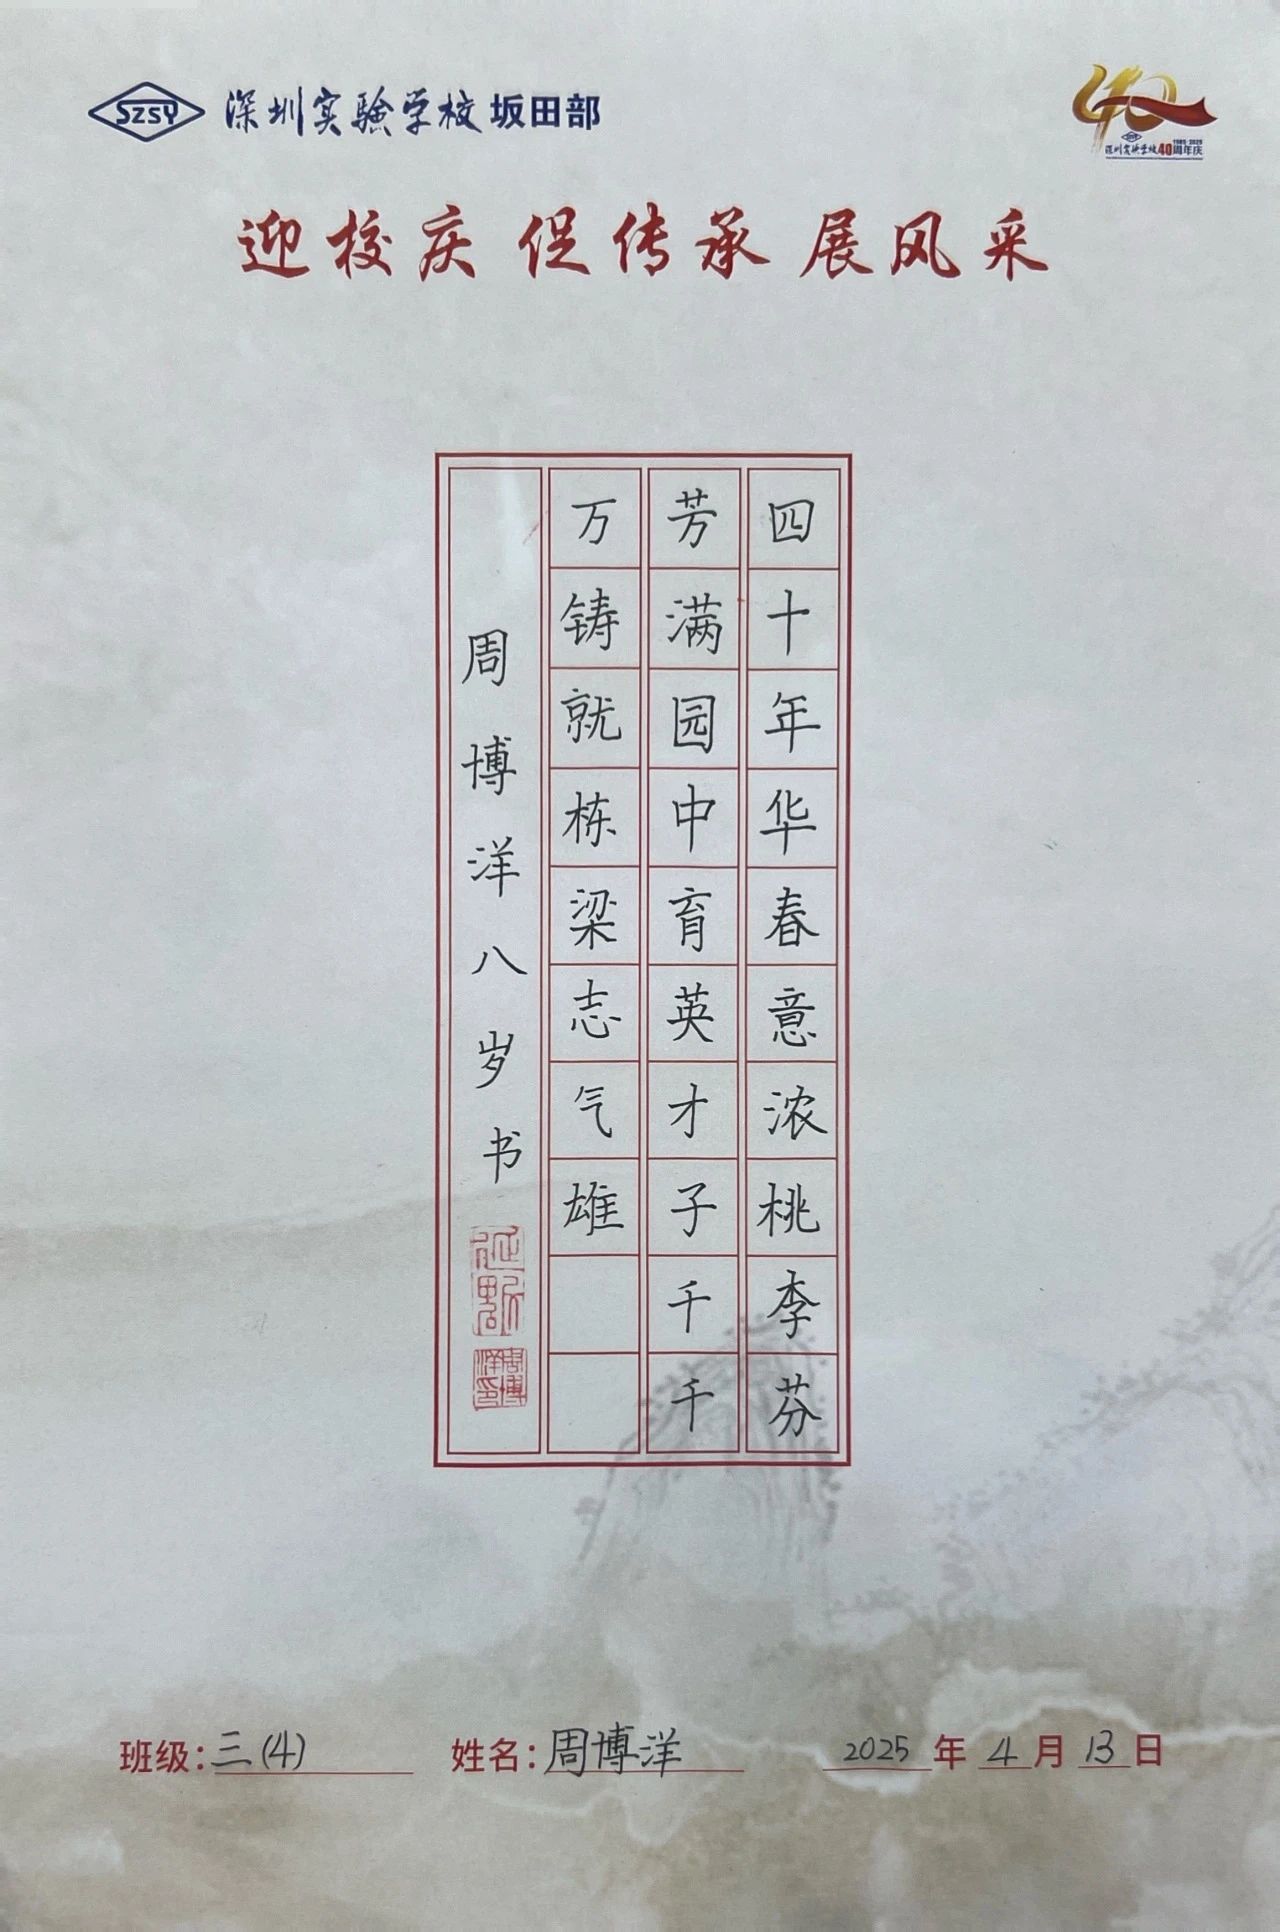 SZSY 深圳实验学校坂田部
40 1985-2025
深圳实验学校40周年庆
迎校庆 促传承 展风采
四十年华春意浓桃李芬
芳满园中育英才子千千
万铸就栋梁志气雄
周博洋八岁书
周博洋印
班级:三(4) 姓名:周博洋 2025年4月13日